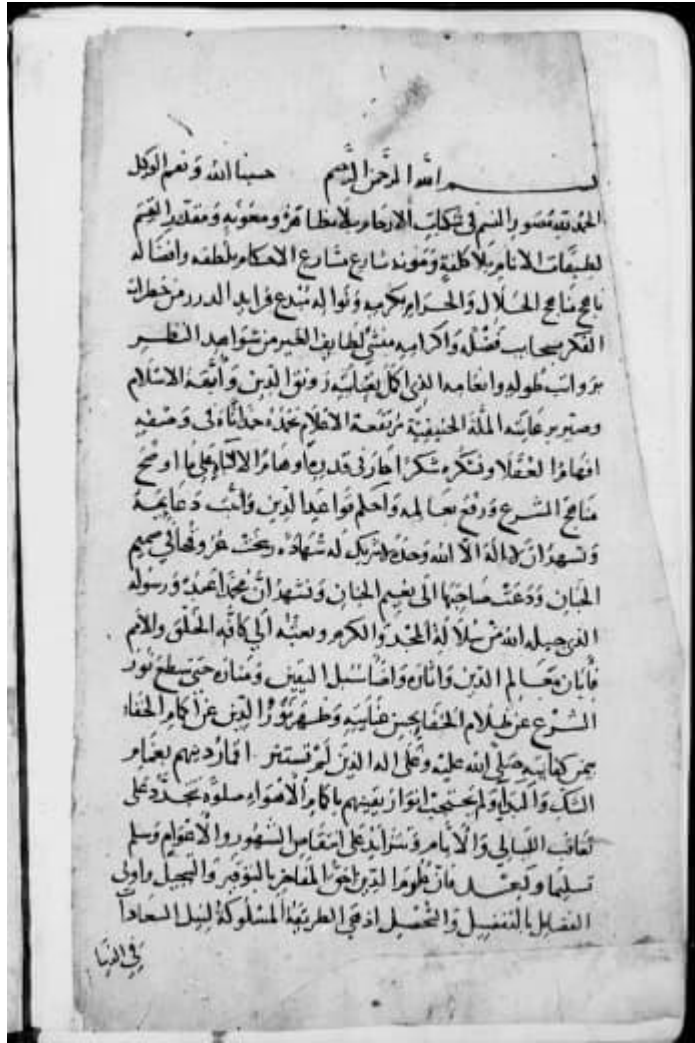 بسم الله الرحمن الرحيم حسبنا الله ونعم الوكيل
الحمد لله مصور النسم في شبكات الارحام بلا مظاهرة ومعونة ومقدر القسم
لطبقات الانام بلا كلفة ومؤنة شارع مشارع الاحكام بلطفه وافضاله
ناهج مناهج الحلال والحرام بكرمه ونواله مبدع فرايد الدرر من خطرات
الفكر سحاب فضله واكرامه منشئ لطايف الخير من شواهد النظر
برواتب طوله وانعامه الذي اكمل رونق الدين وابهة الاسلام
وصير برعايته الملة الحنيفية مرتفعة الاعلام نحمده حمدا في وصفه
افهام العقلا ونشكره شكرا حار في قدره اوهام الالباء على ما اوضح
مناهج الشرع ورفع معالمه واحكم قواعد الدين واثبت دعايمه
ونشهد ان لا اله الا الله وحده لا شريك له شهادة رسخت عروقها في صميم
الجنان ودعت صاحبها الى نعيم الجنان ونشهد ان محمدا عبده ورسوله
الذي جبله الله من سلالة المجد والكرم وبعثه الى كافة الخلق والامم
فأبان معالم الدين واثاره واضا سبل اليقين ومناره حتى سطع نور
الشرع عن ظلام الخفا بحسن عنايته وظهر نور الدين عن اكمام الخفاء
بيمن كفايته صلى الله عليه وعلى اله الذين لم تستتر اقمار دينهم بغمام
الشك ولم يحتجب انوار يقينهم باكمام الاهواء صلوة تتجدد على
تعاقب الليالي والايام وتتزايد على انتقاص الشهور والاعوام وسلم
تسليما وبعد فان علوم الدين احق المفاخر بالتوقير والتبجيل واولى
الفضايل بالتفضيل والتحصيل اذ هي الطريقة المسلوكة لنيل السعادات
في الدنيا